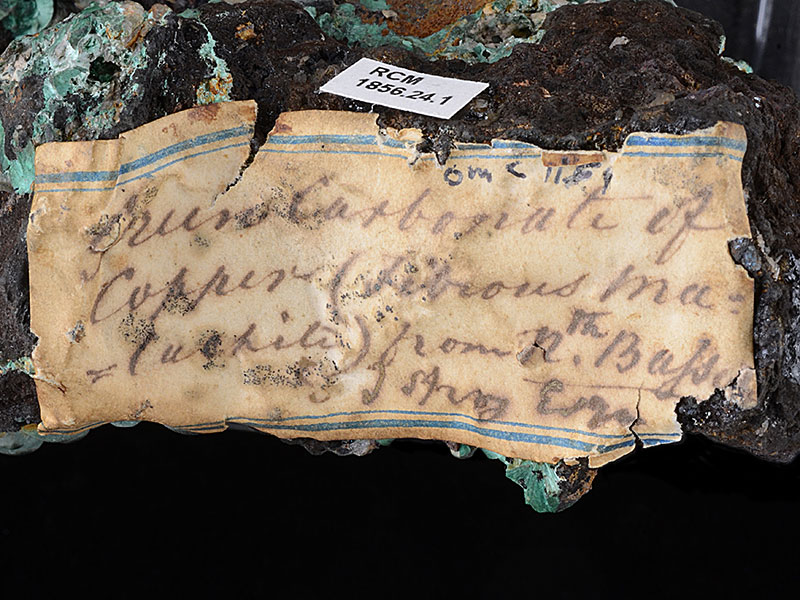 RCM
1856.24.1
Green Carbonate of
Copper (Fibrous Ma=
=lachite) from Nth. Basset
Esqr